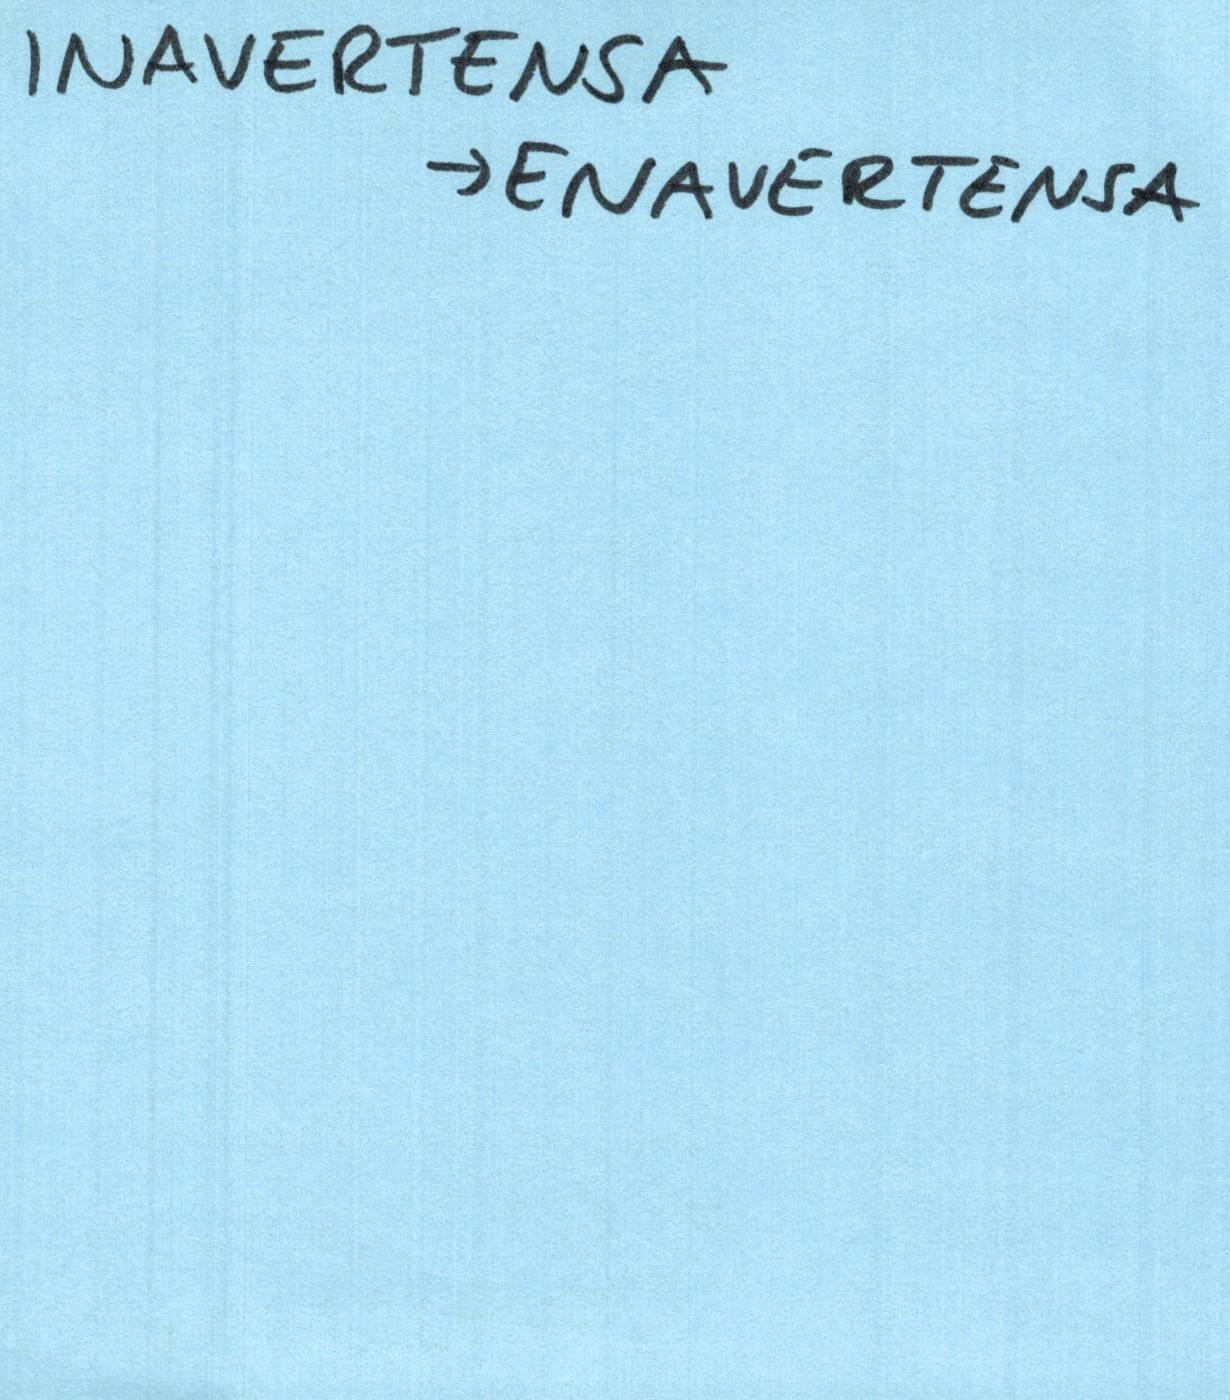 INAVERTENSA
→ENAVERTENSA